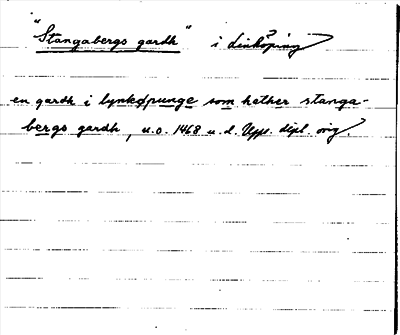 "Stangabergs gardh" i Linköping
en gardh i lynkøpunge som hether stanga-
bergs gardh, u.o. 1468 u.d. Upps. dipl. orig